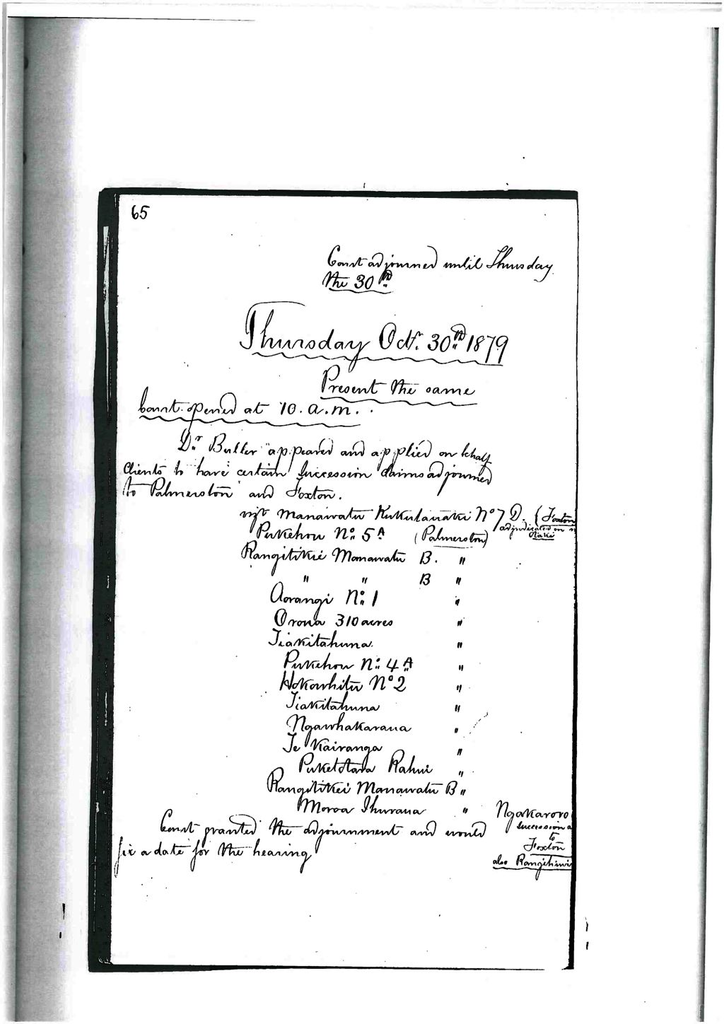 65
Court adjourned until Thursday
the 30th
Thursday Octr. 30th 1879
Present the same
Court opened at 10. a.m.
Dr Buller appeared and applied on behalf
Clients to have certain Succession claims adjourned
to Palmerston and Foxton.
Manawatu Kukutauaki No 7 D. (Foxton
adjudicated on
Otaki
Pukehou No. 5A (Palmerston)
Rangitikei Manawatu B. "
" " B "
Aorangi No. 1 "
Oroua 310 acres "
Tiakitahuna "
Pukehou No. 4 A "
Hokowhitu No 2 "
Tiakitahuna "
Ngawhakaraua "
Te Kairanga "
Puketotara Rahui "
Rangitikei Manawatu B "
Moroa "
Ngakaroro
Succession
to
Foxton
also
Court granted the adjournment and would
fix a date for the hearing